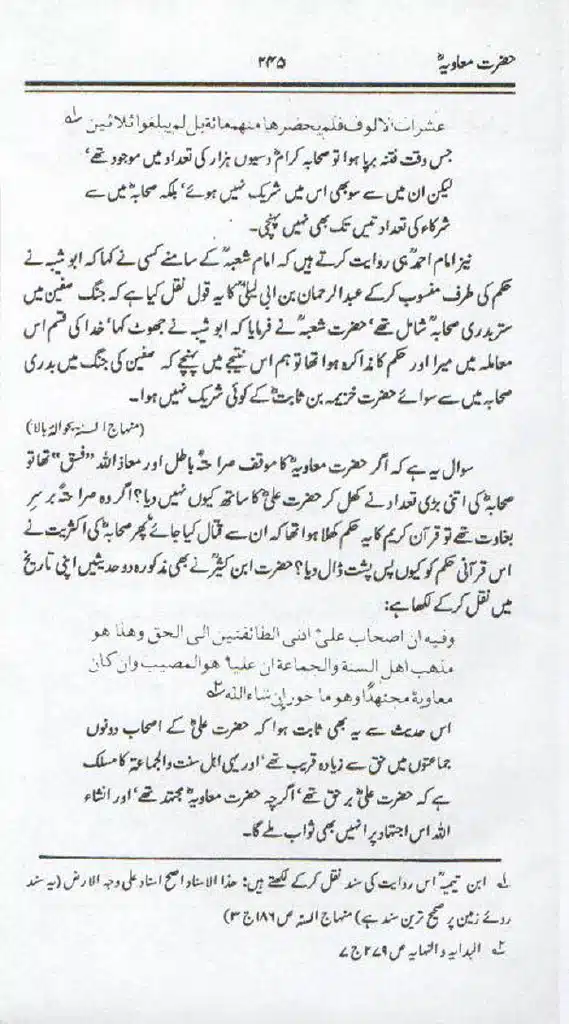 حضرت معاویہؓ
۲۴۵
عشرات الالوف فلم يحضرها منهم مائة بل لم يبلغوا ثلاثين ۱؎
جس وقت فتنہ برپا ہوا تو صحابہ کرامؓ دسیوں ہزار کی تعداد میں موجود تھے‘
لیکن ان میں سے سو بھی اس میں شریک نہیں ہوئے‘ بلکہ صحابہؓ میں سے
شرکاء کی تعداد تیس تک بھی نہیں پہنچی۔
نیز امام احمدؒ ہی روایت کرتے ہیں کہ امام شعبہؒ کے سامنے کسی نے کہا کہ ابو شیبہ نے
حکم کی طرف منسوب کر کے عبد الرحمان بن ابی لیلیٰؒ کا یہ قول نقل کیا ہے کہ جنگ صفین میں
ستر بدری صحابہؓ شامل تھے‘ حضرت شعبہؒ نے فرمایا کہ ابو شیبہ نے جھوٹ کہا‘ خدا کی قسم اس
معاملہ میں میرا اور حکم کا مذاکرہ ہوا تھا تو ہم اس نتیجے میں پہنچے کہ صفین کی جنگ میں بدری
صحابہ میں سے سوائے حضرت خزیمہ بن ثابتؓ کے کوئی شریک نہیں ہوا۔
(منہاج السنۃ بحوالۂ بالا)
سوال یہ ہے کہ اگر حضرت معاویہؓ کا موقف صراحۃً باطل اور معاذ اللہ ”فسق“ تھا تو
صحابہؓ کی اتنی بڑی تعداد نے کھل کر حضرت علیؓ کا ساتھ کیوں نہیں دیا؟ اگر وہ صراحۃً بر سر
بغاوت تھے تو قرآن کریم کا یہ حکم کھلا ہوا تھا کہ ان سے قتال کیا جائے پھر صحابہؓ کی اکثریت نے
اس قرآنی حکم کو کیوں پس پشت ڈال دیا؟ حضرت ابن کثیرؒ نے بھی مذکورہ دو حدیثیں اپنی تاریخ
میں نقل کر کے لکھا ہے:
وفيه ان اصحاب علىؓ ادنى الطائفتين الى الحق وهذا هو
مذهب اهل السنة والجماعة ان علياؓ هو المصيب وان كان
معاوية مجتهدًا وهو ماجور ان شاء الله ۲؎
اس حدیث سے یہ بھی ثابت ہوا کہ حضرت علیؓ کے اصحاب دونوں
جماعتوں میں حق سے زیادہ قریب تھے‘ اور یہی اہل سنت والجماعۃ کا مسلک
ہے کہ حضرت علیؓ برحق تھے‘ اگرچہ حضرت معاویہؓ مجتہد تھے‘ اور انشاء
اللہ اس اجتہاد پر انہیں بھی ثواب ملے گا۔
۱؎ ابن تیمیہؒ اس روایت کی سند نقل کر کے لکھتے ہیں: هذا الاسناد اصح اسناد على وجه الارض (یہ سند
روئے زمین پر صحیح ترین سند ہے) منہاج السنہ ص ۱۸۶ ج ۳)
۲؎ البدایہ والنہایہ ص ۲۷۹ ج ۷